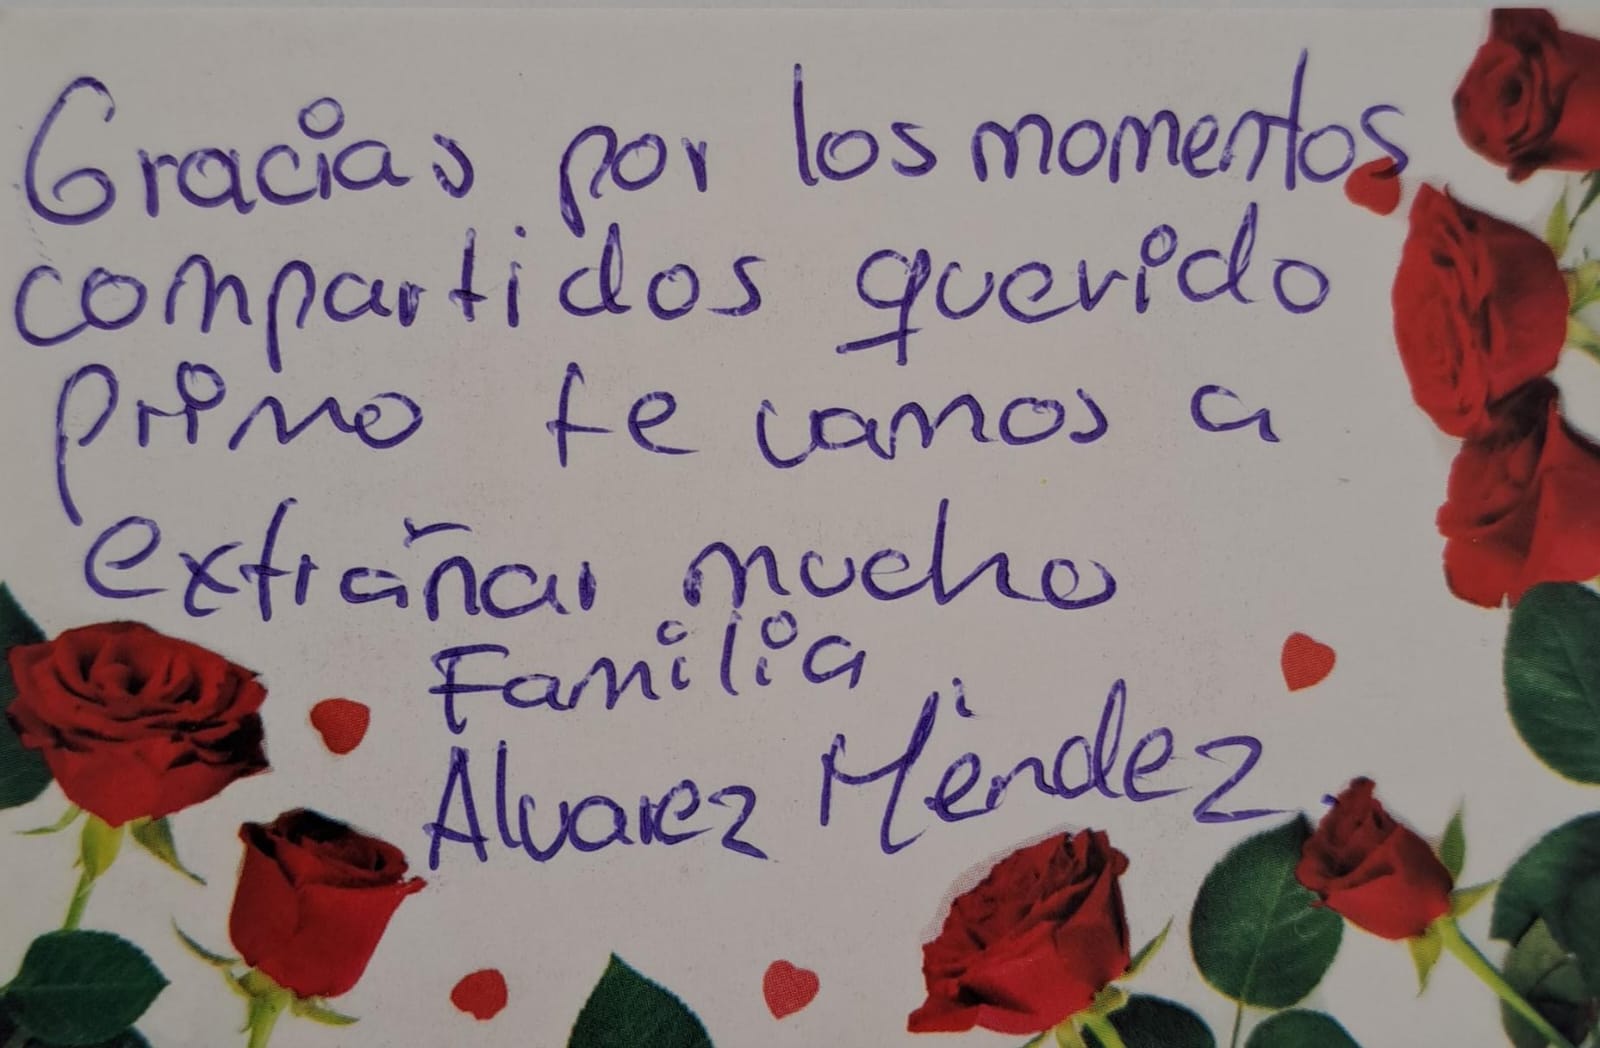 Gracias por los momentos
compartidos querido
primo te vamos a
extrañar mucho
Familia
Alvarez Méndez.